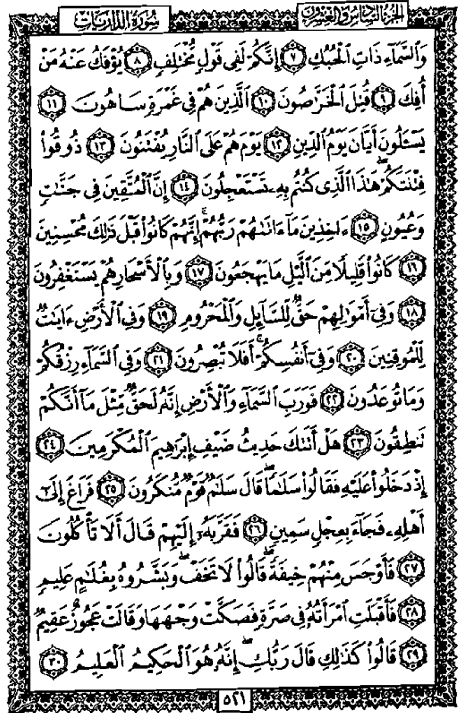 الجزء السادس والعشرون
سورة الذاريات
وَالسَّمَاءِ ذَاتِ الْحُبُكِ ٧ إِنَّكُمْ لَفِي قَوْلٍ مُّخْتَلِفٍ ٨ يُؤْفَكُ عَنْهُ مَنْ
أُفِكَ ٩ قُتِلَ الْخَرَّاصُونَ ١٠ الَّذِينَ هُمْ فِي غَمْرَةٍ سَاهُونَ ١١
يَسْـَٔلُونَ أَيَّانَ يَوْمُ الدِّينِ ١٢ يَوْمَ هُمْ عَلَى النَّارِ يُفْتَنُونَ ١٣ ذُوقُوا
فِتْنَتَكُمْ هَٰذَا الَّذِي كُنتُم بِهِۦ تَسْتَعْجِلُونَ ١٤ إِنَّ الْمُتَّقِينَ فِي جَنَّٰتٍ
وَعُيُونٍ ١٥ ءَاخِذِينَ مَا ءَاتَىٰهُمْ رَبُّهُمْ ۚ إِنَّهُمْ كَانُوا قَبْلَ ذَٰلِكَ مُحْسِنِينَ
١٦ كَانُوا قَلِيلًا مِّنَ الَّيْلِ مَا يَهْجَعُونَ ١٧ وَبِالْأَسْحَارِ هُمْ يَسْتَغْفِرُونَ
١٨ وَفِي أَمْوَٰلِهِمْ حَقٌّ لِّلسَّائِلِ وَالْمَحْرُومِ ١٩ وَفِي الْأَرْضِ ءَايَٰتٌ
لِّلْمُوقِنِينَ ٢٠ وَفِي أَنفُسِكُمْ ۚ أَفَلَا تُبْصِرُونَ ٢١ وَفِي السَّمَاءِ رِزْقُكُمْ
وَمَا تُوعَدُونَ ٢٢ فَوَرَبِّ السَّمَاءِ وَالْأَرْضِ إِنَّهُۥ لَحَقٌّ مِّثْلَ مَا أَنَّكُمْ
تَنطِقُونَ ٢٣ هَلْ أَتَىٰكَ حَدِيثُ ضَيْفِ إِبْرَٰهِيمَ الْمُكْرَمِينَ ٢٤
إِذْ دَخَلُوا عَلَيْهِ فَقَالُوا سَلَٰمًا ۖ قَالَ سَلَٰمٌ قَوْمٌ مُّنكَرُونَ ٢٥ فَرَاغَ إِلَىٰ
أَهْلِهِۦ فَجَاءَ بِعِجْلٍ سَمِينٍ ٢٦ فَقَرَّبَهُۥ إِلَيْهِمْ قَالَ أَلَا تَأْكُلُونَ
٢٧ فَأَوْجَسَ مِنْهُمْ خِيفَةً ۖ قَالُوا لَا تَخَفْ ۖ وَبَشَّرُوهُ بِغُلَٰمٍ عَلِيمٍ
٢٨ فَأَقْبَلَتِ امْرَأَتُهُۥ فِي صَرَّةٍ فَصَكَّتْ وَجْهَهَا وَقَالَتْ عَجُوزٌ عَقِيمٌ
٢٩ قَالُوا كَذَٰلِكِ قَالَ رَبُّكِ ۖ إِنَّهُۥ هُوَ الْحَكِيمُ الْعَلِيمُ ٣٠
٥٢١